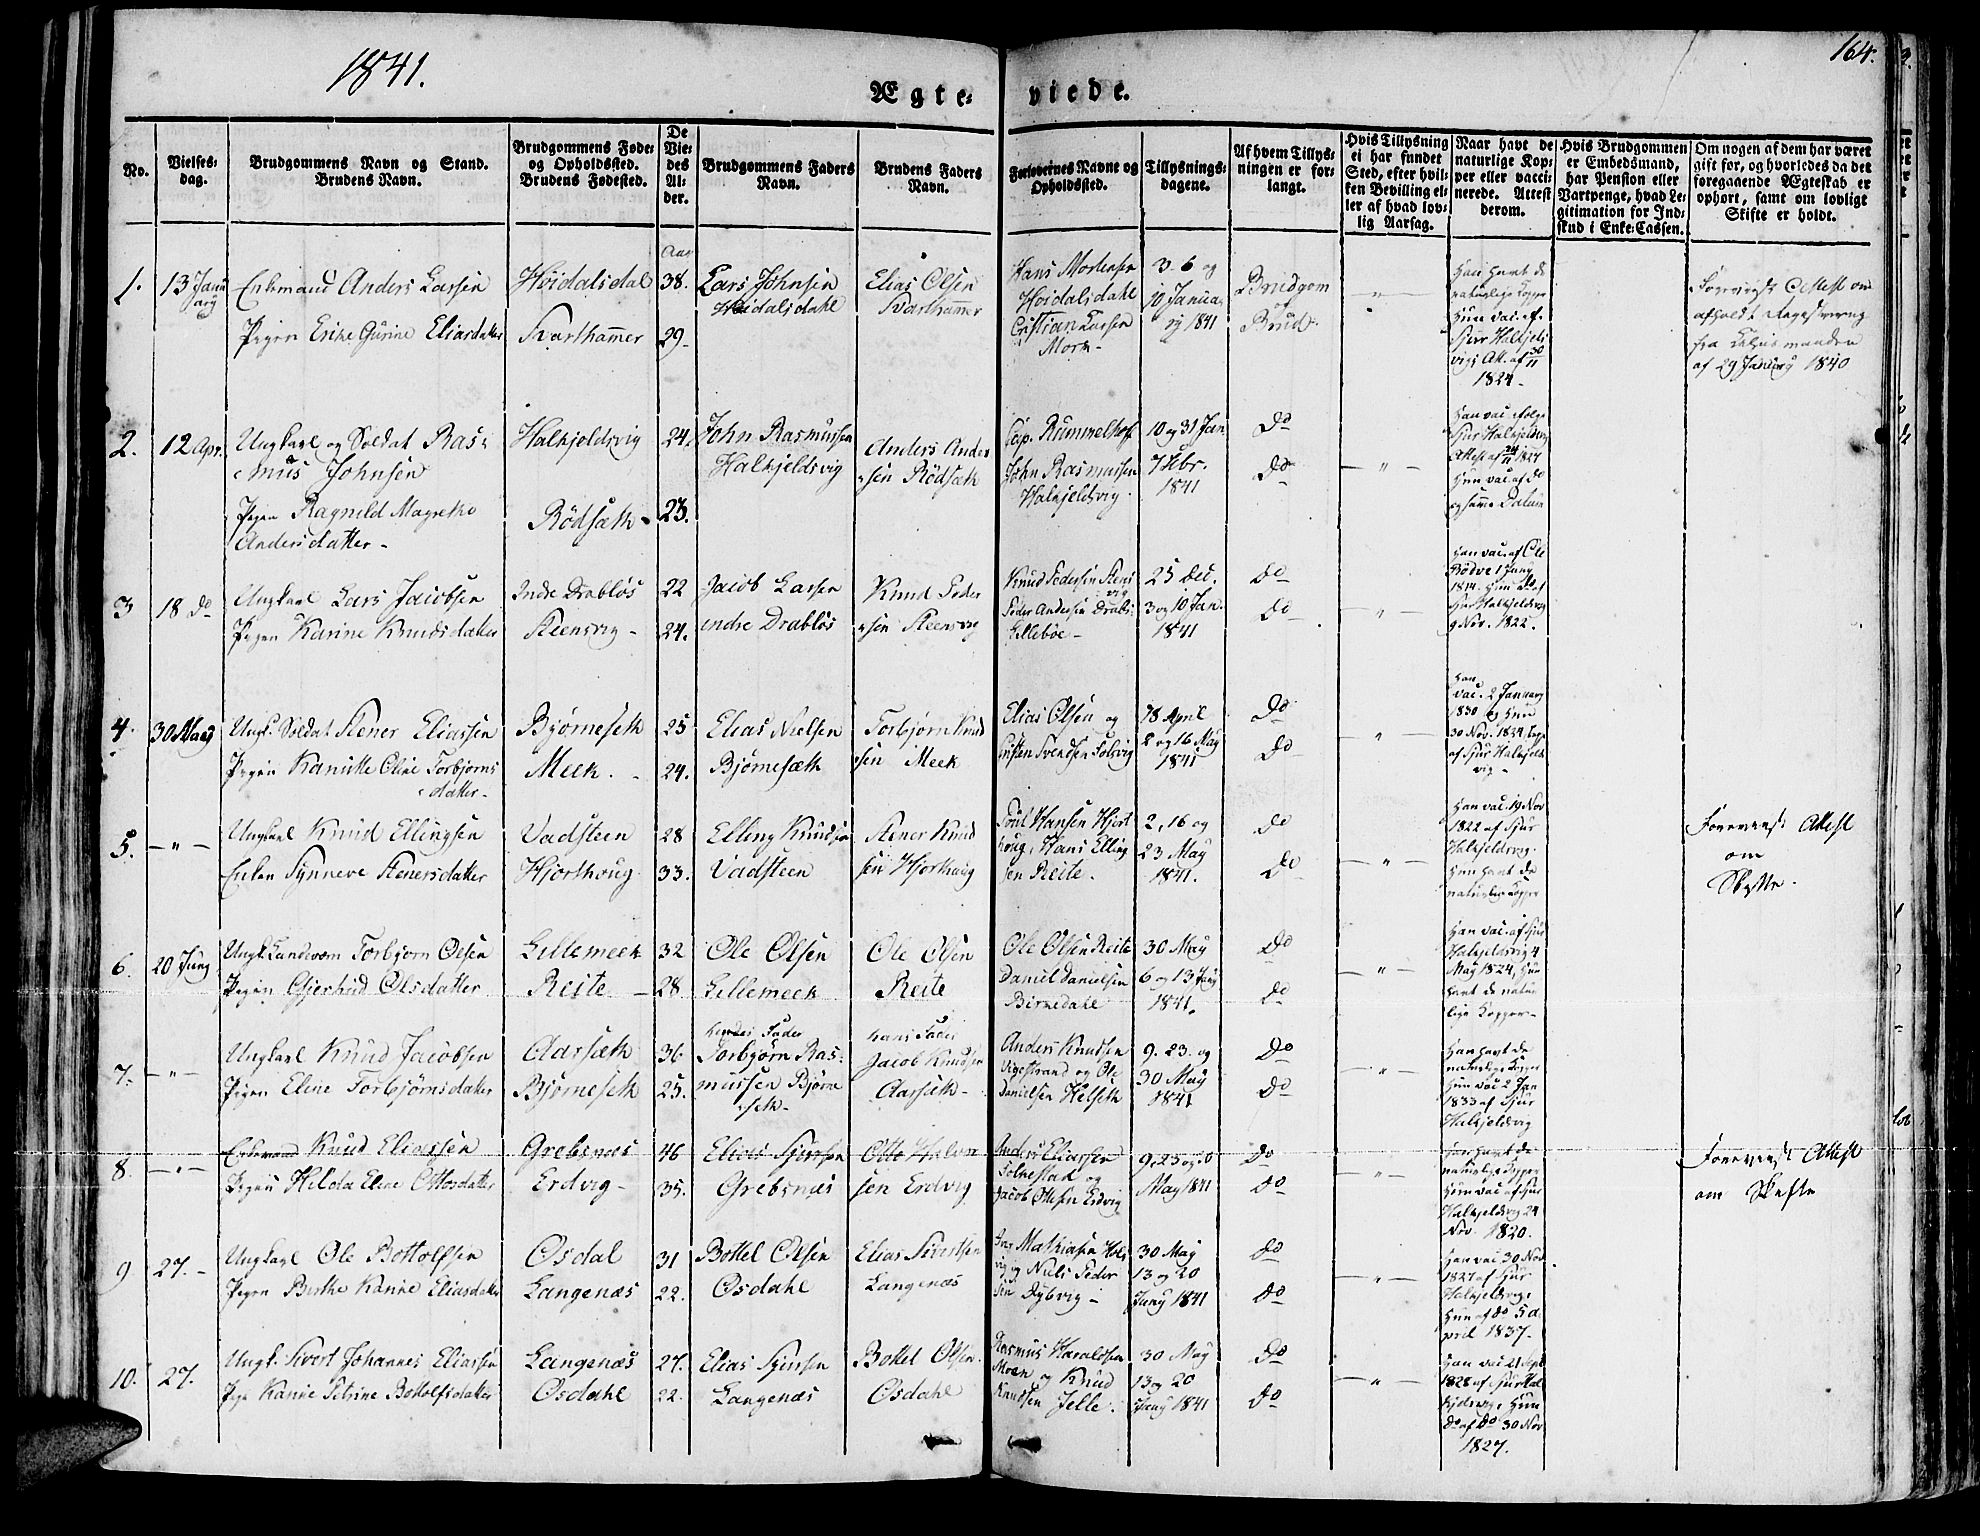 1841.
164.
Ægte-
viede.
No.
Vielses-
dag.
Brudgommens Navn og Stand.
Brudens Navn.
Brudgommens Føde-
og Opholdssted.
Brudens Fødested.
De
Vie-
des
Al-
der.
Brudgommens Faders
Navn.
Brudens Faders
Navn.
Forlovernes Navne og
Opholdssted.
Tillysnings-
dagene.
Af hvem Tillys-
ningen er for-
langt.
Hvis Tillysning
ei har fundet
Sted, efter hvil-
ken Bevilling el-
ler af hvad lov-
lig Aarsag.
Naar havt de
naturlige Kop-
per eller vacci-
nerede. Attest
derom.
Hvis Brudgommen
er Embedsmand,
har Pension eller
Vartpenge, hvad Le-
gitimation for Ind-
skud i Enke-Cassen.
Om nogen af dem har været
gift før, og hvorledes da det
foregaaende Ægteskab er
ophørt, samt om lovligt
Skifte er holdt.
Aar
1. 13 Janu
ary
Enkemand Anders Larsen
Pigen Erike Gurine Eliasdatter
Høidalsdal
Svarthamer
38.
29
Lars Johnsen
Høidalsdahl
Elias Olsen
Svarthamer
Hans Mortensen
Høidalsdahl
Cristian Larsen
Mork
3. 6 og
10 Janua
ry 1841
Brudgom
og
Brud.
Han havt de
naturlige Kopper
Hun vac. af
Sjur Halkjels
vigs Att. af 30/11
1824
Foreviist Attest om
afholdt
fra
af 29 January 1840
2. 12 Apr.
Ungkarl og Soldat Ras-
mus Johnsen
Pigen Ragnild Magrethe
Andersdatter
Halkjoldsvig
Rødsæth
24.
23.
John Rasmussen
Halkjeldsvig
Anders Ander
sen Rødsæth
Cap. Rummelhof
John Rasmussen
Halkjeldsvig
10 og 31 Jan
7 Febr.
1841
Do
Do
Han vac. ifølge
Sjur Halkjeldsvig
Attest af 24/11 1827
Hun vac. af do
og samme Datum
3 18 Do
Ungkarl Lars Jacobsen
Pigen Karine Knudsdatter
Indre Drabløs
Steensvig
22
24.
Jacob Larsen
indre Drabløs
Knud Peder
sen Steensvig
Knud Pedersen Stens
vig
Peder Andersen Drabl:
Lillebøe
25 Dec.
3 og 10 Jan.
1841
Do
Do
Han vac. af Ole
Bødve 1 Juny
1819. Hun Do af
Sjur Halkjeldsvig
9 Nov. 1822.
4. 30 May
Ungk. Soldat Stener Eliassen
Pigen Kanutte Oline Torbjørns
datter
Bjørneseth
Meek.
25
24.
Elias Nielsen
Bjørnesæth
Torbjørn Knud
sen Meek
Elias Olsen og
Cristen Svendsen Solevig
18 April
2 og 16 May
1841
Do
Do
Han
vac. 2 January
1830 og Hun
30 Nov. 1824
af Sjur Halkjelds
vig
5. — " —
Ungkarl Knud Ellingsen
Enken Synneve Stenersdatter
Vadsteen
Hjorthoug
28
33.
Elling Knudsen
Vadsteen
Stener Knud
sen Hjorthoug
Poul Hansen Hjort
houg, Hans Elling
sen Reite.
2, 16 og
23 May
1841.
Do
Do
Han vac. 19 Nov
1822 af Sjur
Halkjeldsvig.
Hun havt de
naturlige Kopper
Foreviist Attest
om
Skifte.
6. 20 Juny
Ungk. Landværn Torbjørn Olsen
Pigen Gjerthrud Olsdatter
Lillemeek
Reite
32
28
Ole Olsen
Lillemeek
Ole Olsen
Reite
Ole Olsen Reite
Daniel Danielsen
Birkedahl
30 May
6 og 13 Juny
1841.
Do
Do
Han vac. af Sjur
Halkjeldsvig 4
May 1824, Hun
havt de natur
lige Kopper
7. — " —
Ungkarl Knud Jacobsen
Pigen Elene Torbjørnsdatter
Aarsæth
Bjørneseth
36.
25.
hendes Fader
Torbjørn Ras-
mussen Bjørne
seth
hans Fader
Jacob Knudsen
Aarsæth
Anders Knudsen
Vigestrand og Ole
Danielsen Helseth
9. 23. og
30 May
1841
Do
Do
Han havt de
naturlige Kopper
Hun vac. 2 Jan
1833 af Sjur
Halkjeldsvig
8. — " —
Enkemand Knud Eliassen
Pigen Hilda Elene Ottosdatter
Grebsnæs
Erdvig
46
35.
Elias Sjursen
Grebsnæs
Otto Halvor
sen Erdvig
Anders Eliassen
Solnestad og
Jacob Ottesen Erdvig
9, 23 og 30
May 1841
Do
Do
Han havt de
naturlige Kopper
Hun vac. af Sjur
Halkjeldsvig 24
Nov. 1820.
Foreviist Attest
om Skifte
9 27.
Ungkarl Ole Bottolfsen
Pigen Birthe Karine Eliasdatter
Osdal
Langenæs
31
22.
Bottel Olsen
Osdahl
Elias Sivertsen
Langenæs
Iver Mathiasen Hols
vig og Niels Peder
sen Dybvig
30 May
13 og 20
Juny 1841
Do
Do
Han vac 30 Nov.
1827 af Sjur
Halkjeldsvig.
Hun af Do 5 A
pril 1837.
10. 27.
Ungk. Sivert Johannes Eliassen
Pige Karine Petrine Bottolfsdatter
Langenæs
Osdahl
27.
22.
Elias Sjursen
Langenæs
Bottel Olsen
Osdahl
Rasmus Haraldsen
Moen og Knud
Knudsen Jelle.
30 May
13 og 20
Juny 1841
Do
Do
Han vac 21 Sept
1828 af Sjur Hal
kjeldsvig, Hun
Do af Do 30 Nov
1827.